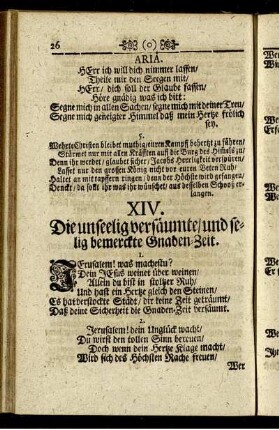 26 (o)
ARIA.
HErr ich will dich nimmer lassen/
Theile mir den Seegen mit/
HErr/ dich soll der Glaube fassen/
Höre gnädig was ich bitt:
Segne mich in allen Sachen/ segne mich mit deiner Treu/
Segne mich geneigter Himmel daß mein Hertze frölich
sey.
5.
Wehrte Christen bleibet muthig/ euren Kampff behertzt zu führen/
Stürmet nur mit allen Kräfften auf die Burg des Himmels zu/
Denn ihr werdet/ glaubet sicher/ Jacobs Herrligkeit verspüren/
Lasset nur den grossen König nicht vor euren Beten Ruh/
Haltet an mit tapffern ringen/ denn der Höchste wird gefangen/
Denckt/ da sollt ihr was ihr wünschet/ aus desselben Schooß er-
langen.
XIV.
Die unseelig versäumte/ und se-
lig bemerckte Gnaden-Zeit.
1.
Jerusalem! was machestu?
Dein JEsus weinet über weinen/
Allein du bist in stoltzer Ruh/
Und hast ein Hertze gleich den Steinen/
Es hat verstockte Stadt/ dir keine Zeit geträumt/
Daß deine Sicherheit die Gnaden-Zeit versäumt.
2.
Jerusalem! dein Unglück wacht/
Du wirst den tollen Sinn bereuen/
Doch wenn dein Hertze Klage macht/
Wird sich des Höchsten Rache freuen/
Wer